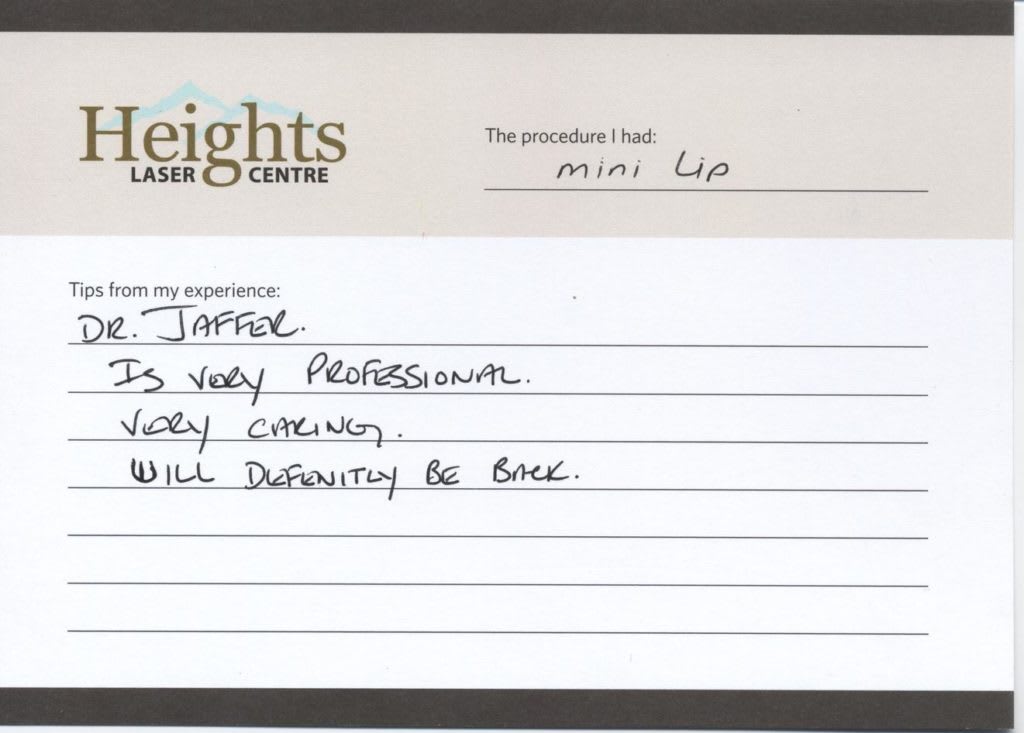 Heights
LASER CENTRE
The procedure I had:
mini Lip
Tips from my experience:
DR. JAFFER.
IS VERY PROFESSIONAL.
VERY CARING.
WILL DEFENITLY BE BACK.